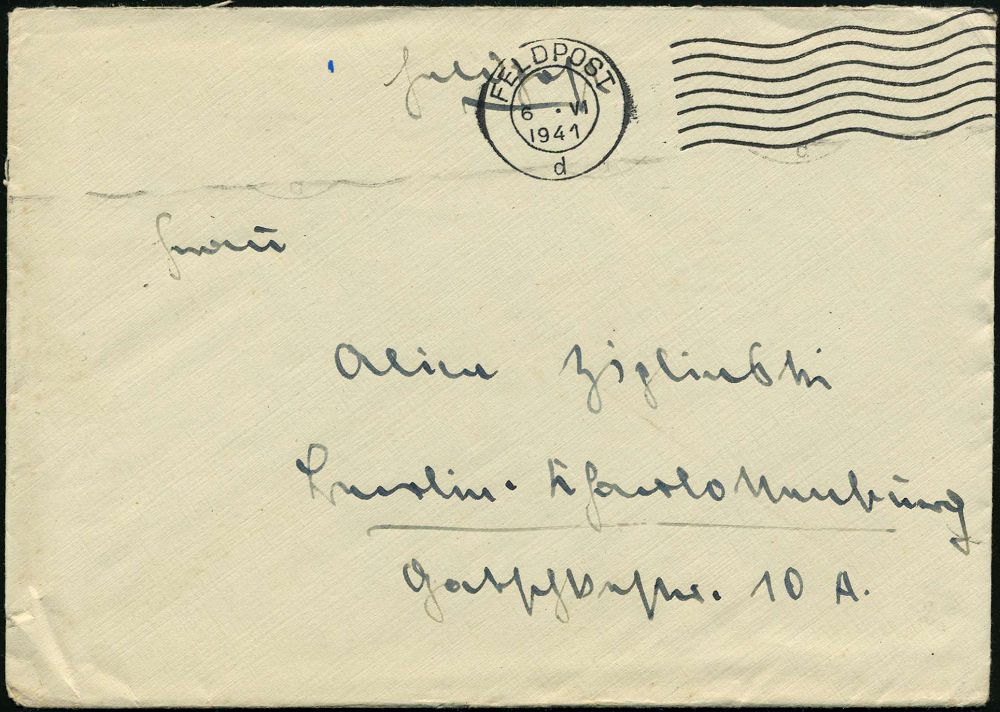 Feldpost
FELDPOST
6 . VI
1941
d
Frau
Alice
Berlin-Charlottenburg
10 A.